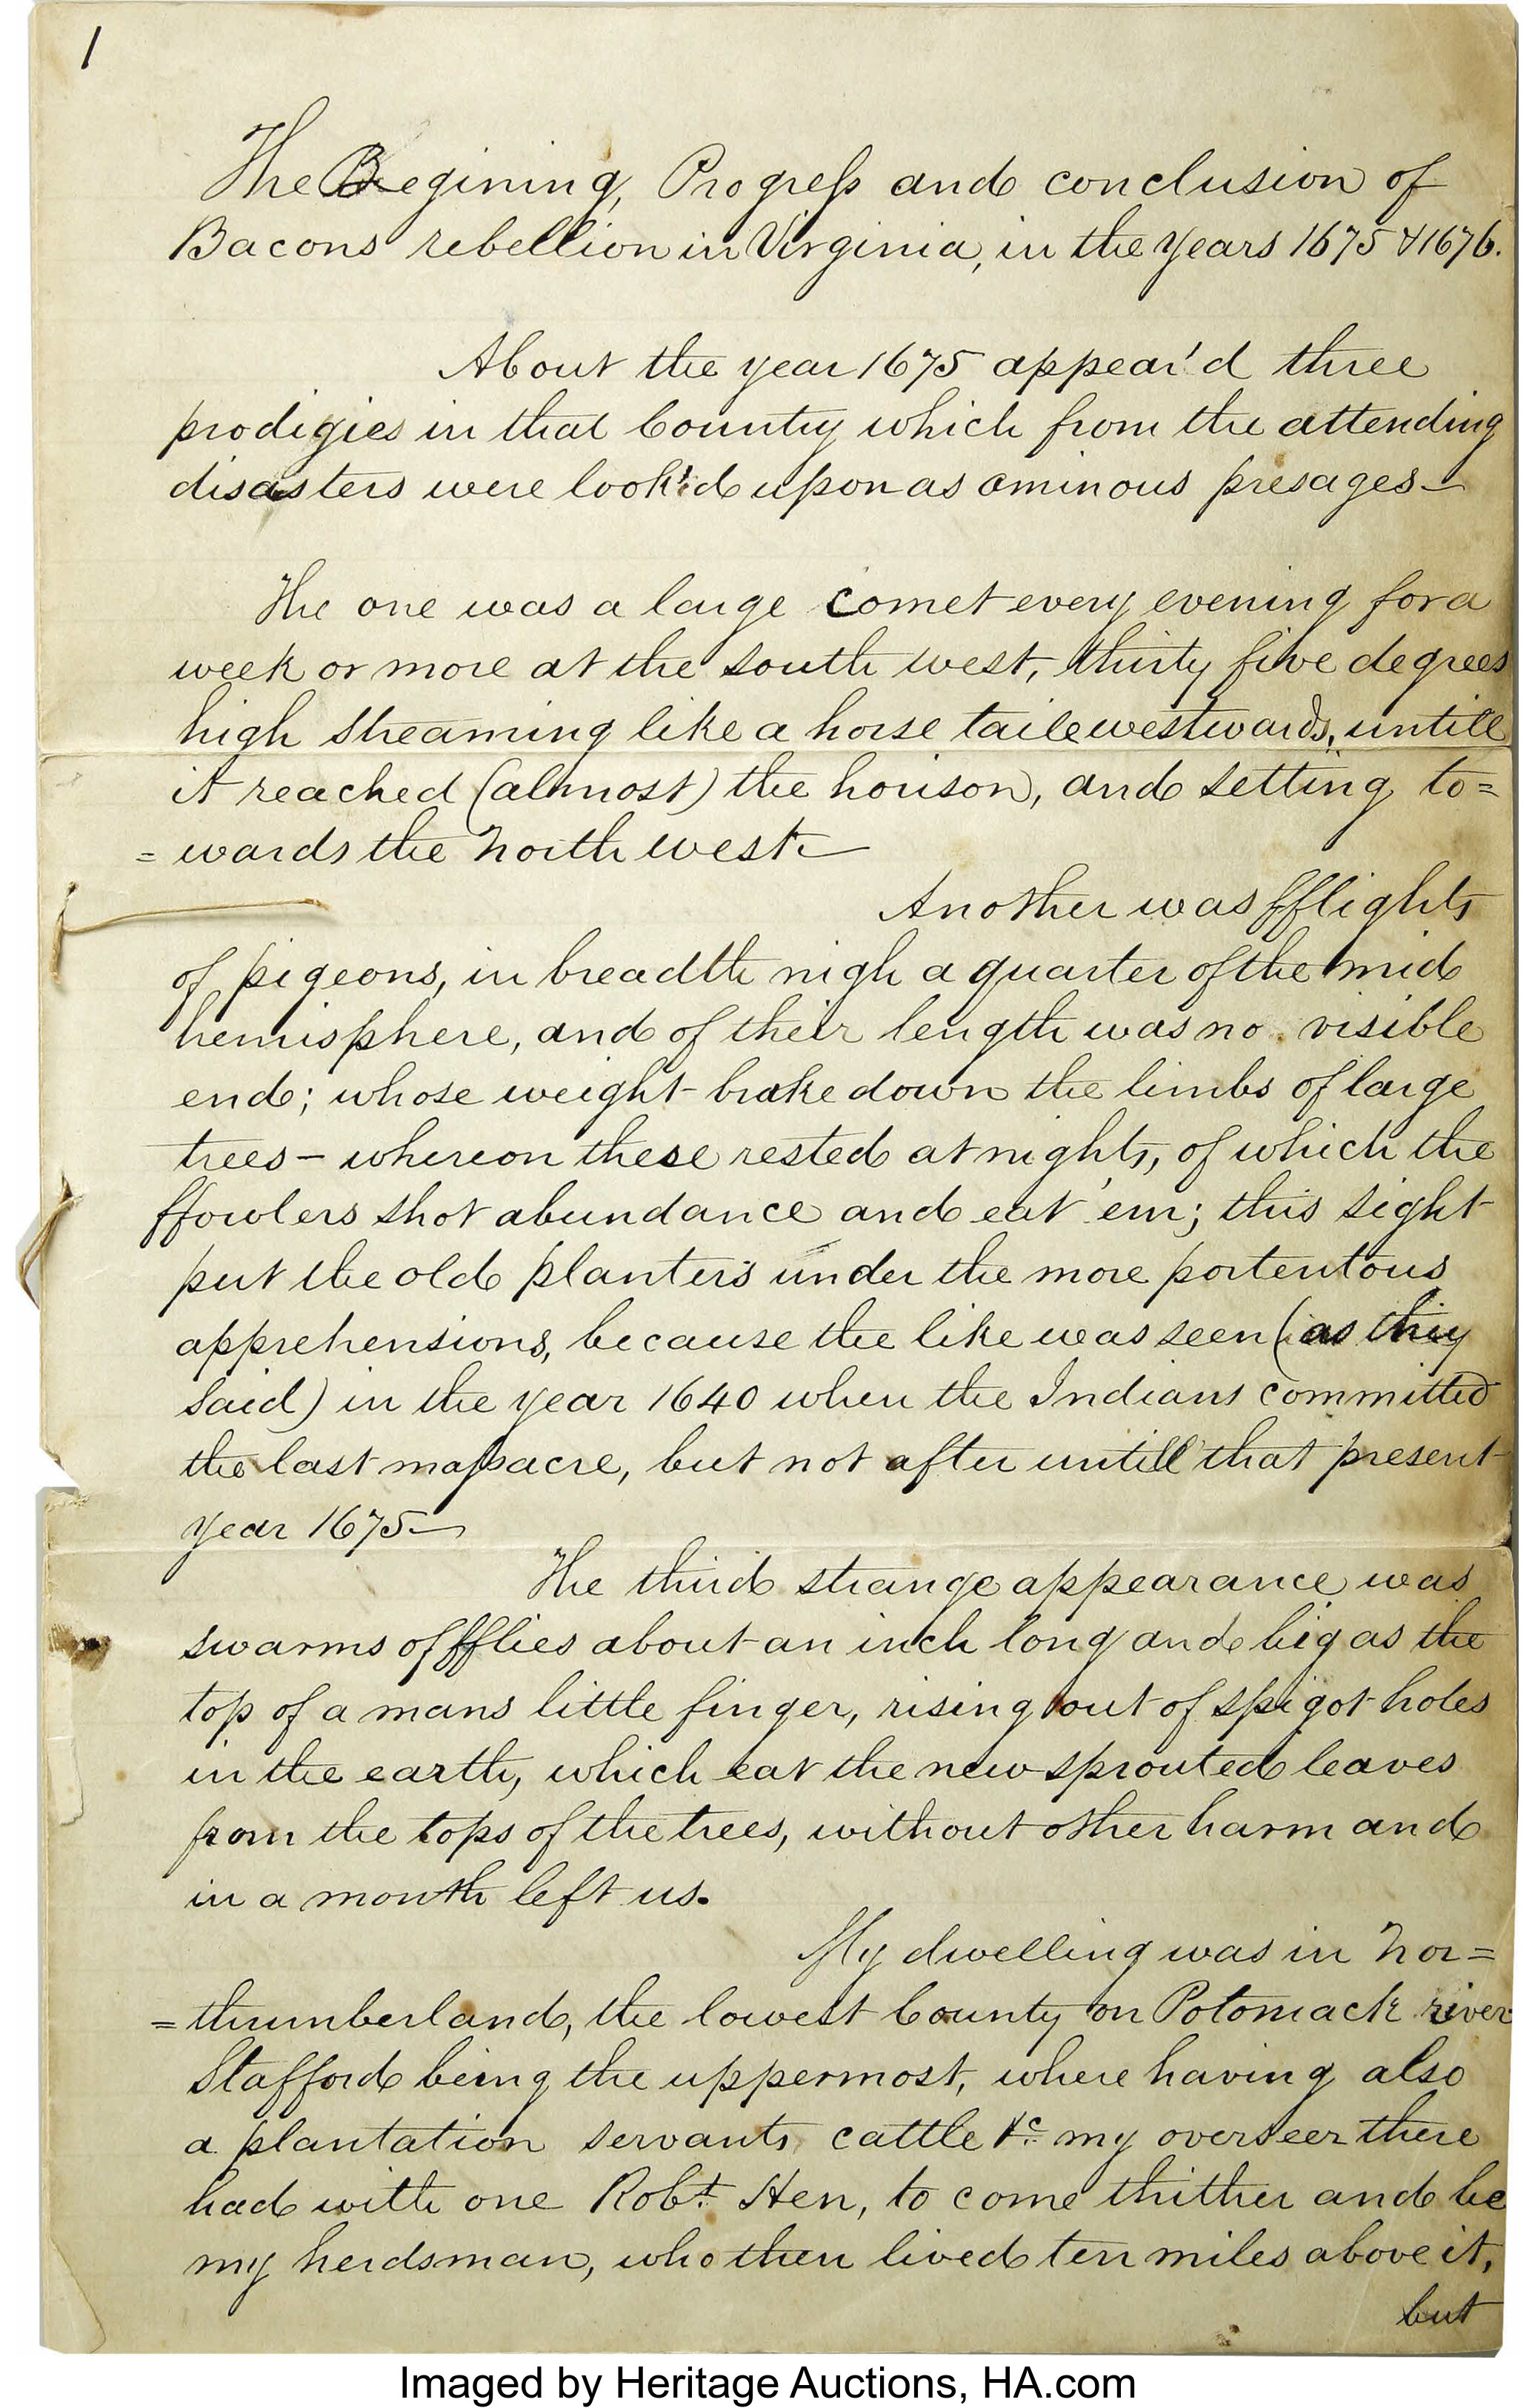 1
The Begining, Progress and conclusion of
Bacons rebellion in Virginia, in the years 1675 & 1676.
About the year 1675 appear'd three
prodigies in that County which from the attending
disasters were look'd upon as ominous presages—
The one was a large comet every evening for a
week or more at the south west, thirty five degrees
high streaming like a horse taile westwards, untill
it reached (almost) the horison, and setting to=
=wards the North west—
Another was fflights
of pigeons, in breadth nigh a quarter of the mid
hemisphere, and of their length was no visible
end; whose weight brake down the limbs of large
trees – whereon these rested at nights, of which the
ffowlers shot abundance and eat 'em; this sight
put the old planters under the more portentous
apprehensions, because the like was seen (as they
said) in the year 1640 when the Indians committed
the last massacre, but not after untill that present
year 1675—
The third strange appearance was
swarms of fflies about an inch long and big as the
top of a mans little finger, rising out of spigot holes
in the earth, which eat the new sprouted leaves
from the tops of the trees, without other harm and
in a month left us.
My dwelling was in Nor=
=thumberland, the lowest County on Potomack river
Stafford being the uppermost, where having also
a plantation servants, cattle &c my overseer there
had with one Robt. Hen, to come thither and be
my herdsman, who then lived ten miles above it,
but
Imaged by Heritage Auctions, HA.com